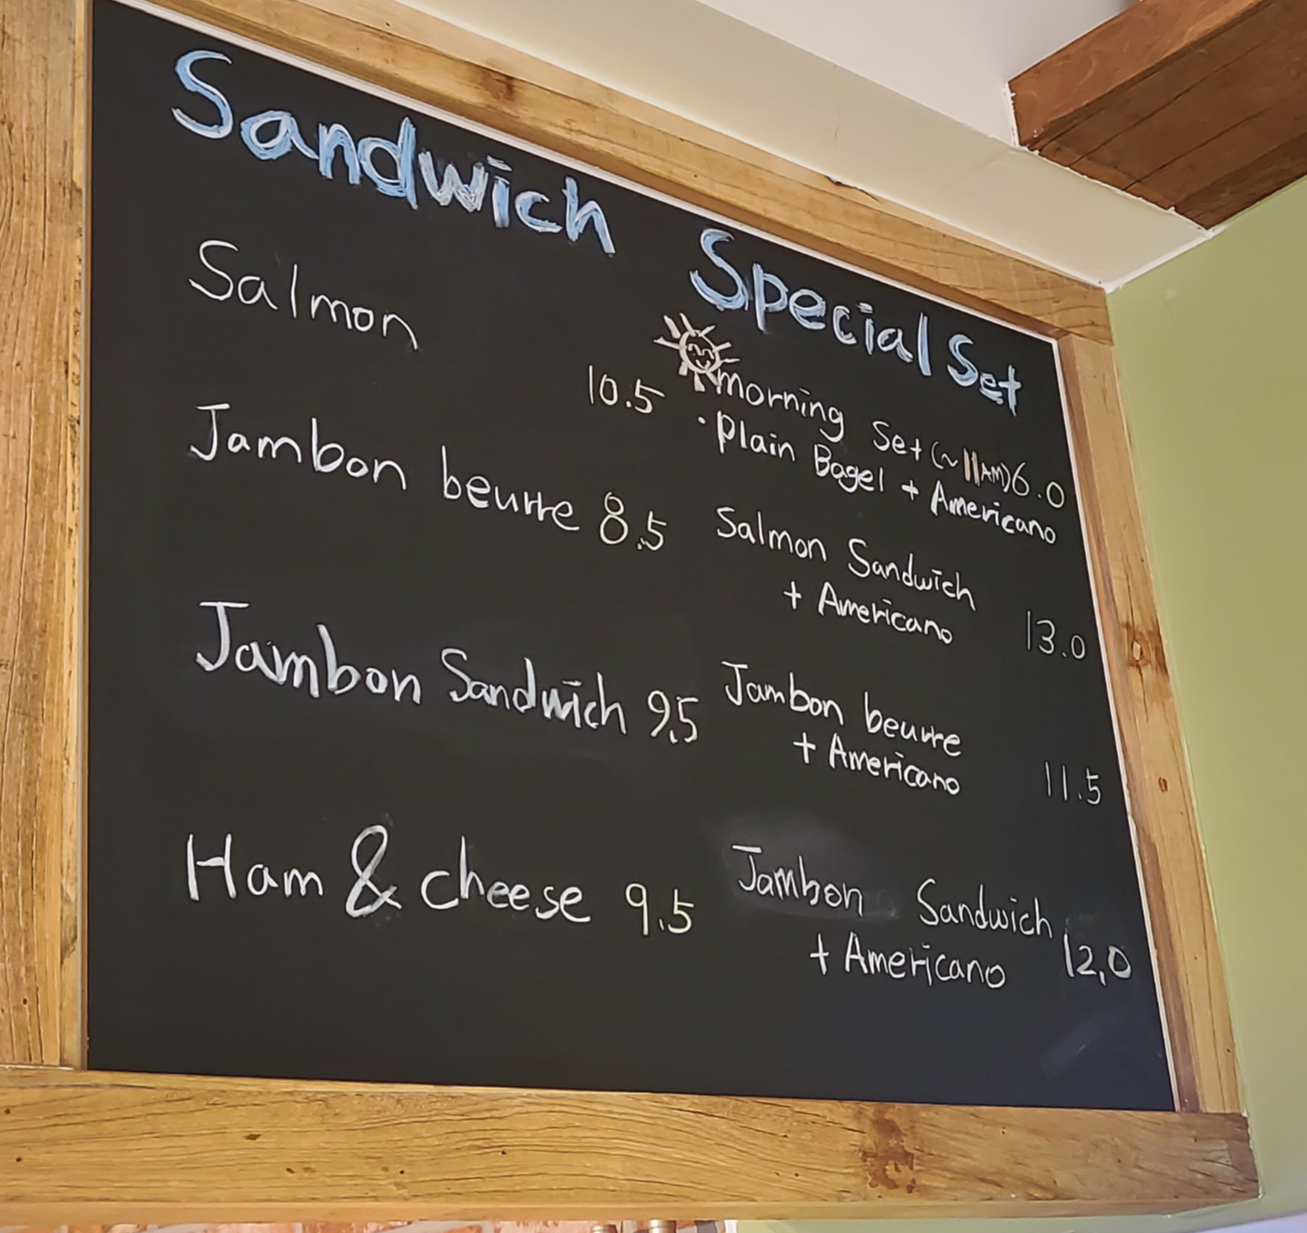 Sandwich
Salmon 10.5
Jambon beurre 8.5
Jambon Sandwich 9.5
Ham & cheese 9.5
Special Set
morning Set (~11AM) 6.0
· Plain Bagel + Americano
Salmon Sandwich
+ Americano 13.0
Jambon beurre
+ Americano 11.5
Jambon Sandwich
+ Americano 12.0